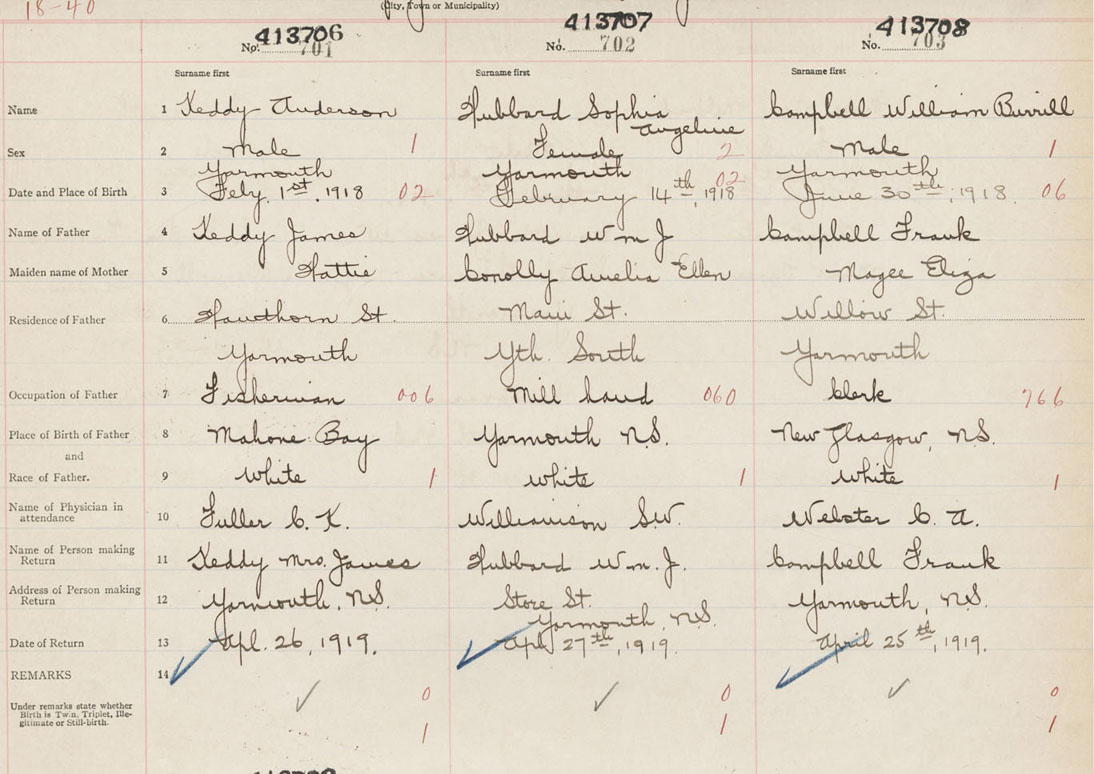 18-40
(City, Town or Municipality)
413706 413707 413708
No. 701 No. 702 No. 703
Surname first Surname first Surname first
Name 1 Keddy Anderson Hubbard Sophia Angeline Campbell William Burrill
Sex 2 Male 1 Female 2 Male 1
Yarmouth Yarmouth Yarmouth
Date and Place of Birth 3 Feby. 1st, 1918 02 February 14th, 1918 02 June 30th, 1918. 06
Name of Father 4 Keddy James Hubbard Wm J Campbell Frank
Maiden name of Mother 5 Hattie Conolly Amelia Ellen Magee Eliza
Residence of Father 6 Hawthorn St. Main St. Willow St.
Yarmouth Yth. South Yarmouth
Occupation of Father 7 Fisherman 006 Mill hand 060 Clerk 766
Place of Birth of Father 8 Mahone Bay Yarmouth N.S. New Glasgow, N.S.
and
Race of Father. 9 White 1 White 1 White 1
Name of Physician in
attendance 10 Fuller C. K. Williamson S.W. Webster C. A.
Name of Person making
Return 11 Keddy Mrs. James Hubbard Wm. J. Campbell Frank
Address of Person making
Return 12 Yarmouth, N.S. Store St. Yarmouth, N.S. Yarmouth, N.S.
Date of Return 13 Apl. 26, 1919. Apl 27th, 1919. April 25th, 1919.
REMARKS 14
Under remarks state whether
Birth is Twin, Triplet, Ille-
gitimate or Still-birth.
0 0 0
1 1 1